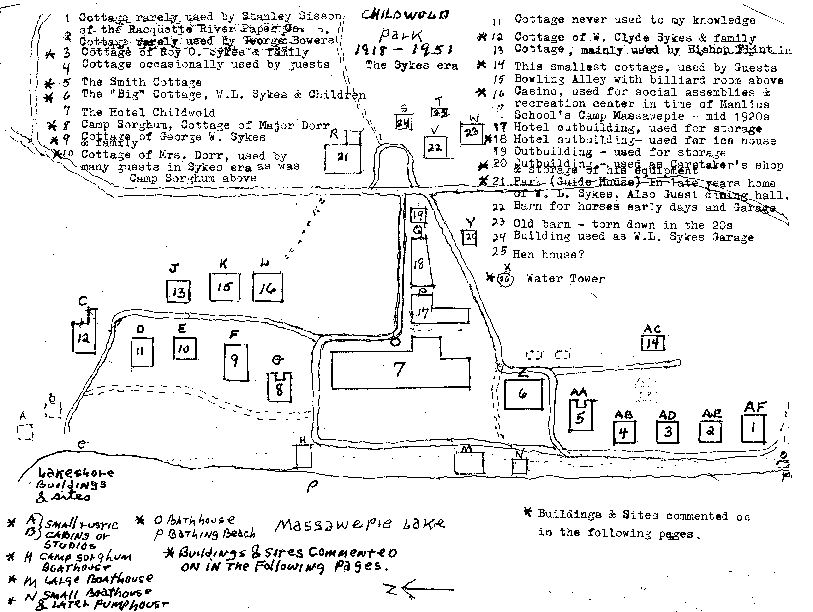 CHILDWOLD
Park
1918 - 1951
The Sykes era
1 Cottage rarely used by Stanley Sisson
of the Racquette River Paper Co.
2 Cottage rarely used by George Bowers
* 3 Cottage of Roy O. Sykes & family
4 Cottage occasionally used by guests
* 5 The Smith Cottage
* 6 The "Big" Cottage, W.L. Sykes & Children
7 The Hotel Childwold
* 8 Camp Sorghum, Cottage of Major Dorr
* 9 Cottage of George W. Sykes
& family
*10 Cottage of Mrs. Dorr, used by
many guests in Sykes era as was
Camp Sorghum above
11 Cottage never used to my knowledge
* 12 Cottage of W. Clyde Sykes & family
13 Cottage, mainly used by Bishop
* 14 This smallest cottage, used by Guests
15 Bowling Alley with billiard room above
* 16 Casino, used for social assemblies &
recreation center in time of Manlius
School's Camp Massawepie - mid 1920s
17 Hotel outbuilding, used for storage
*18 Hotel outbuilding - used for ice house
19 Outbuilding - used for storage
* 20 Outbuilding - used as Caretaker's shop
& storage of his equipment
* 21 Park (Guide House) In late years home
of W. L. Sykes. Also Guest dining hall.
22 Barn for horses early days and Garage
23 Old barn - torn down in the 20s
24 Building used as W.L. Sykes Garage
25 Hen house?
X
* 26 Water Tower
S T
24 25
R V W
21 22 23
19
Q Y
18 20
P
17
J K L
13 15 16
C
12
D E F G
11 10 9 8
7
AC
14
Z
6
AA
5
AB AD AE AF
4 3 2 1
A B
H M N
P
Lakeshore
Buildings
& Sites
* A) Small rustic
B) cabins or
studios
* H Camp Sorghum
Boathouse
* M Large Boathouse
* N Small Boathouse
& Later Pumphouse
* O Bathhouse
P Bathing Beach
Massawepie Lake
* Buildings & Sites Commented
on in the Following Pages.
N
* Buildings & Sites commented on
in the following pages.